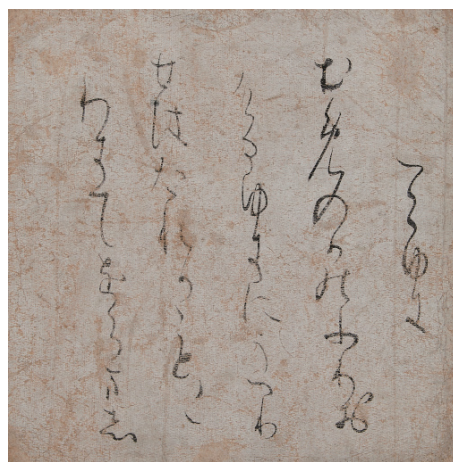 つらゆき
むめのかのふりお
けるゆきにうつり
せはたれかことこと
わきてをらまし